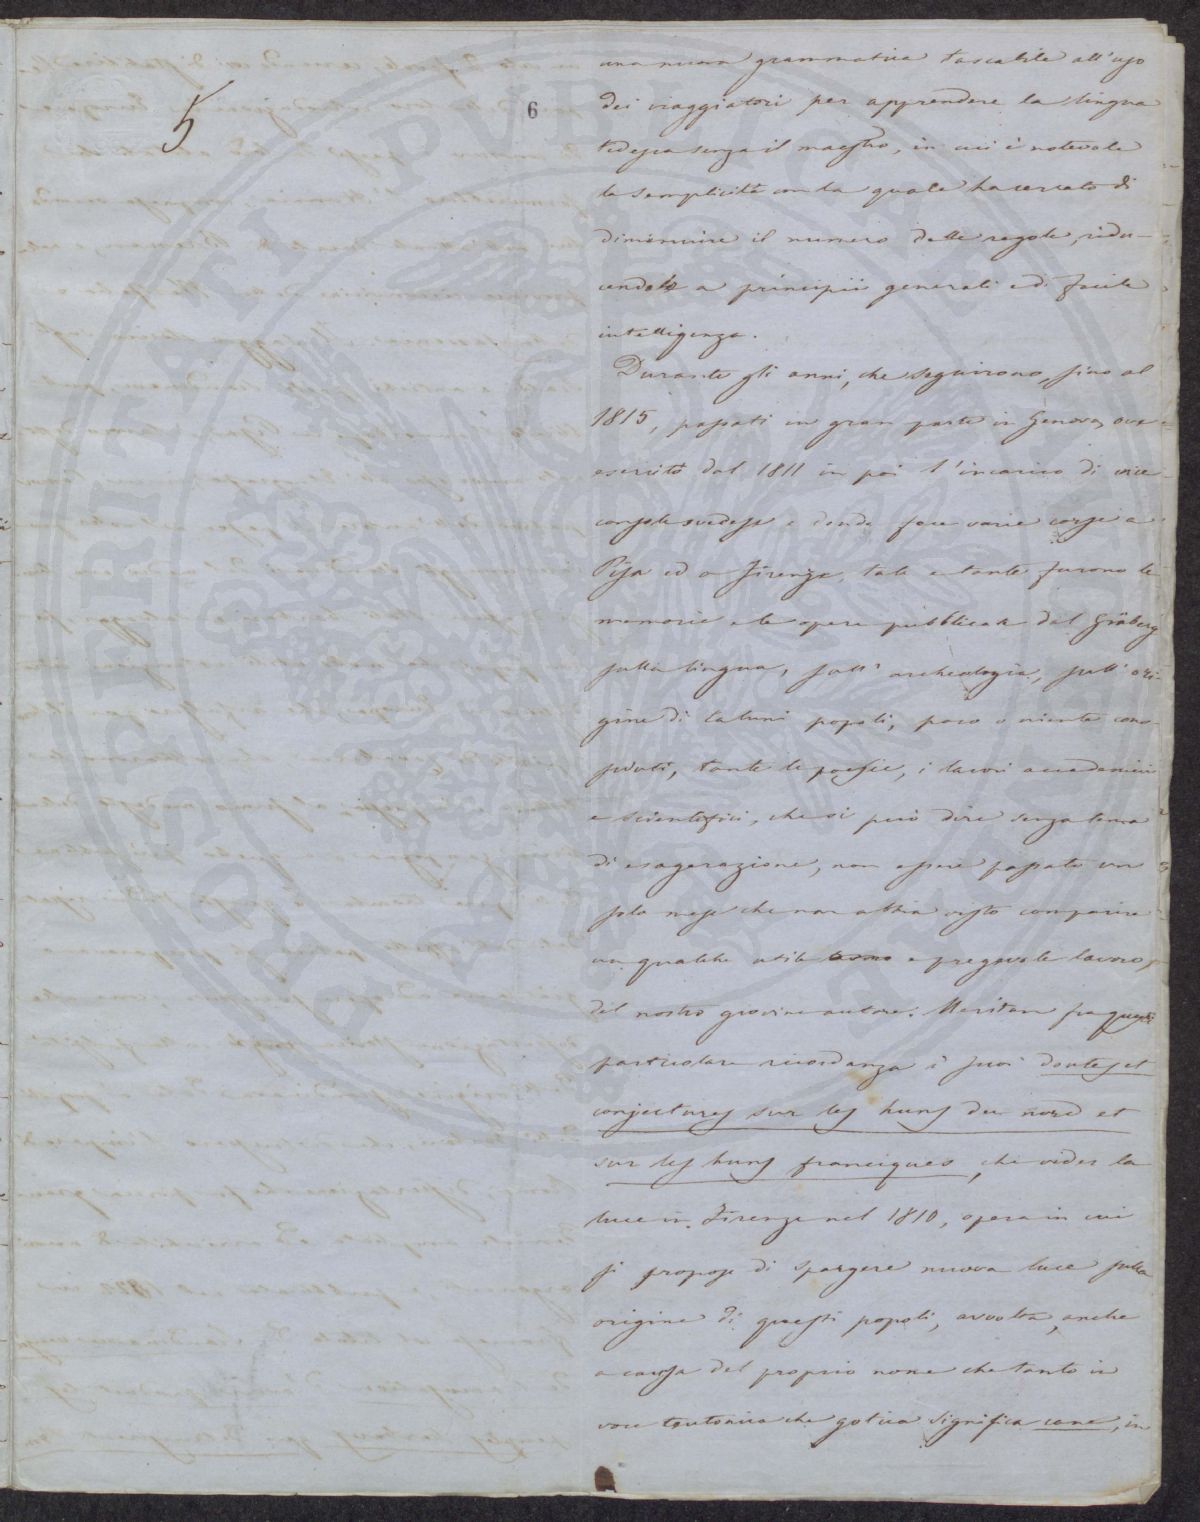 5
6
una nuova grammatica tascabile all'uso
dei viaggiatori per apprendere la lingua
tedesca senza il maestro, in cui è notevole
la semplicità con la quale ha cercato di
diminuire il numero delle regole, ridu-
cendole a principii generali e di facile
intelligenza.
Durante gli anni, che seguirono, fino al
1815, passati in gran parte in Genova, ove
esercitò dal 1811 in poi l'incarico di vice
console svedese e donde fece varie corse a
Pisa ed a Firenze, tale e tante furono le
memorie e le opere pubblicate dal Gräberg
sulla lingua, sull'archeologia, sull'ori-
gine di taluni popoli, poco o niente cono-
sciuti, tante le poesie, i lavori accademici
e scientifici, che si può dire senza tema
di esagerazione, non essere passato un
solo mese che non abbia visto comparire
un qualche utile e pregevole lavoro,
del nostro giovine autore. Meritan fra questi
particolare ricordanza i suoi doutes et
conjectures sur les huns du nord et
sur les huns franciques, che vider la
luce in Firenze nel 1810, opera in cui
si propose di spargere nuova luce sulla
origine di questi popoli, avvolta, anche
a causa del proprio nome che tanto in
voce teutonica che gotica significa cane, in